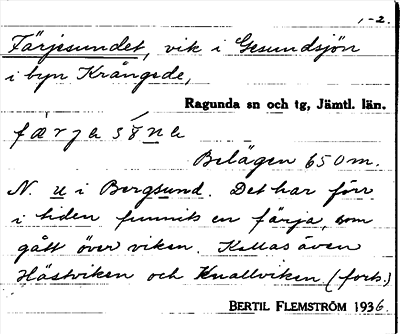 1-2.
Färjesundet, vik i Gesundsjön
i byn Krångede,
Ragunda sn och tg, Jämtl. län.
Belägen 650 m.
N. u i Bergsund. Det har förr
i tiden funnits en färja, som
gått över viken. Kallas även
Hästviken och Knallviken (forts.)
BERTIL FLEMSTRÖM 1936.